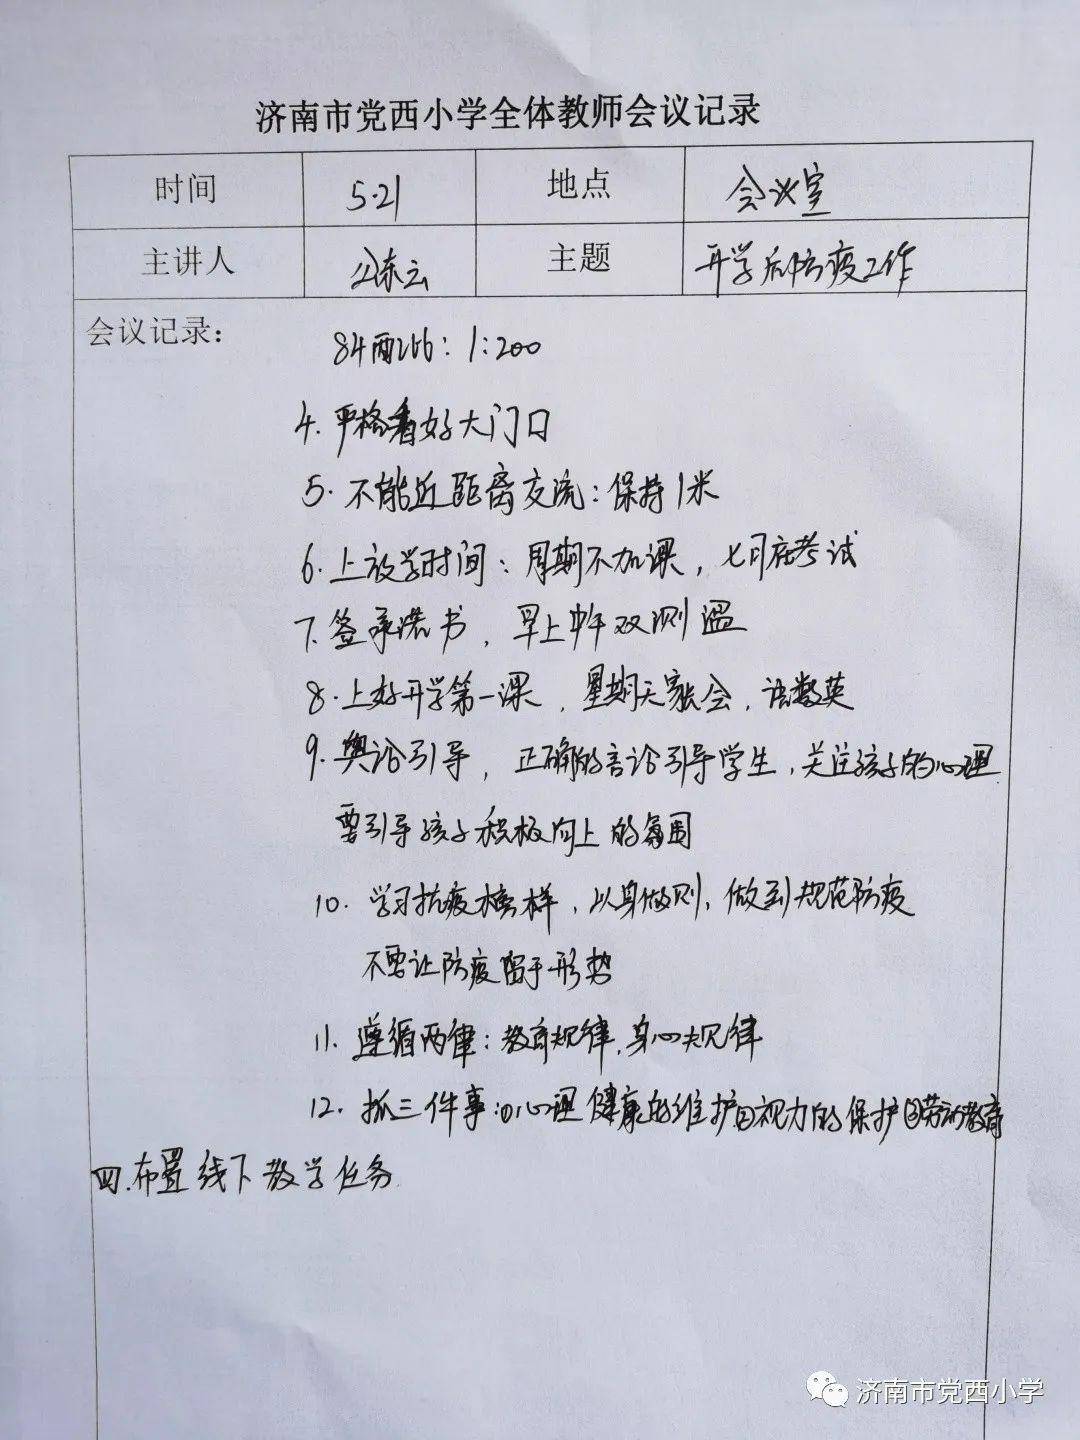 济南市党西小学全体教师会议记录
时间 5.21 地点 会议室
主讲人 公东云 主题 开学后防疫工作
会议记录:
84配比: 1:200
4. 严格看好大门口
5. 不能近距离交流: 保持1米
6. 上放学时间: 周期不加课, 七月底考试
7. 签承诺书, 早上中午双测温
8. 上好开学第一课, 星期天家长会, 语数英
9. 舆论引导, 正确的言论引导学生, 关注孩子的心理
要引导孩子积极向上的氛围
10. 学习抗疫榜样, 以身做则, 做到规范防疫
不要让防疫留于形势
11. 遵循两律: 教育规律, 身心规律
12. 抓三件事: ①心理健康的维护②视力的保护③劳动教育
四. 布置线下教学任务
济南市党西小学